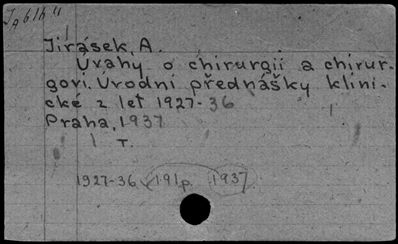 Jirásek, A.
Úvahy o chirurgii a chirur-
govi. Úvodní přednášky klini-
cké z let 1927-36
Praha, 1937
1 T.
1927-36 191p. 1937.